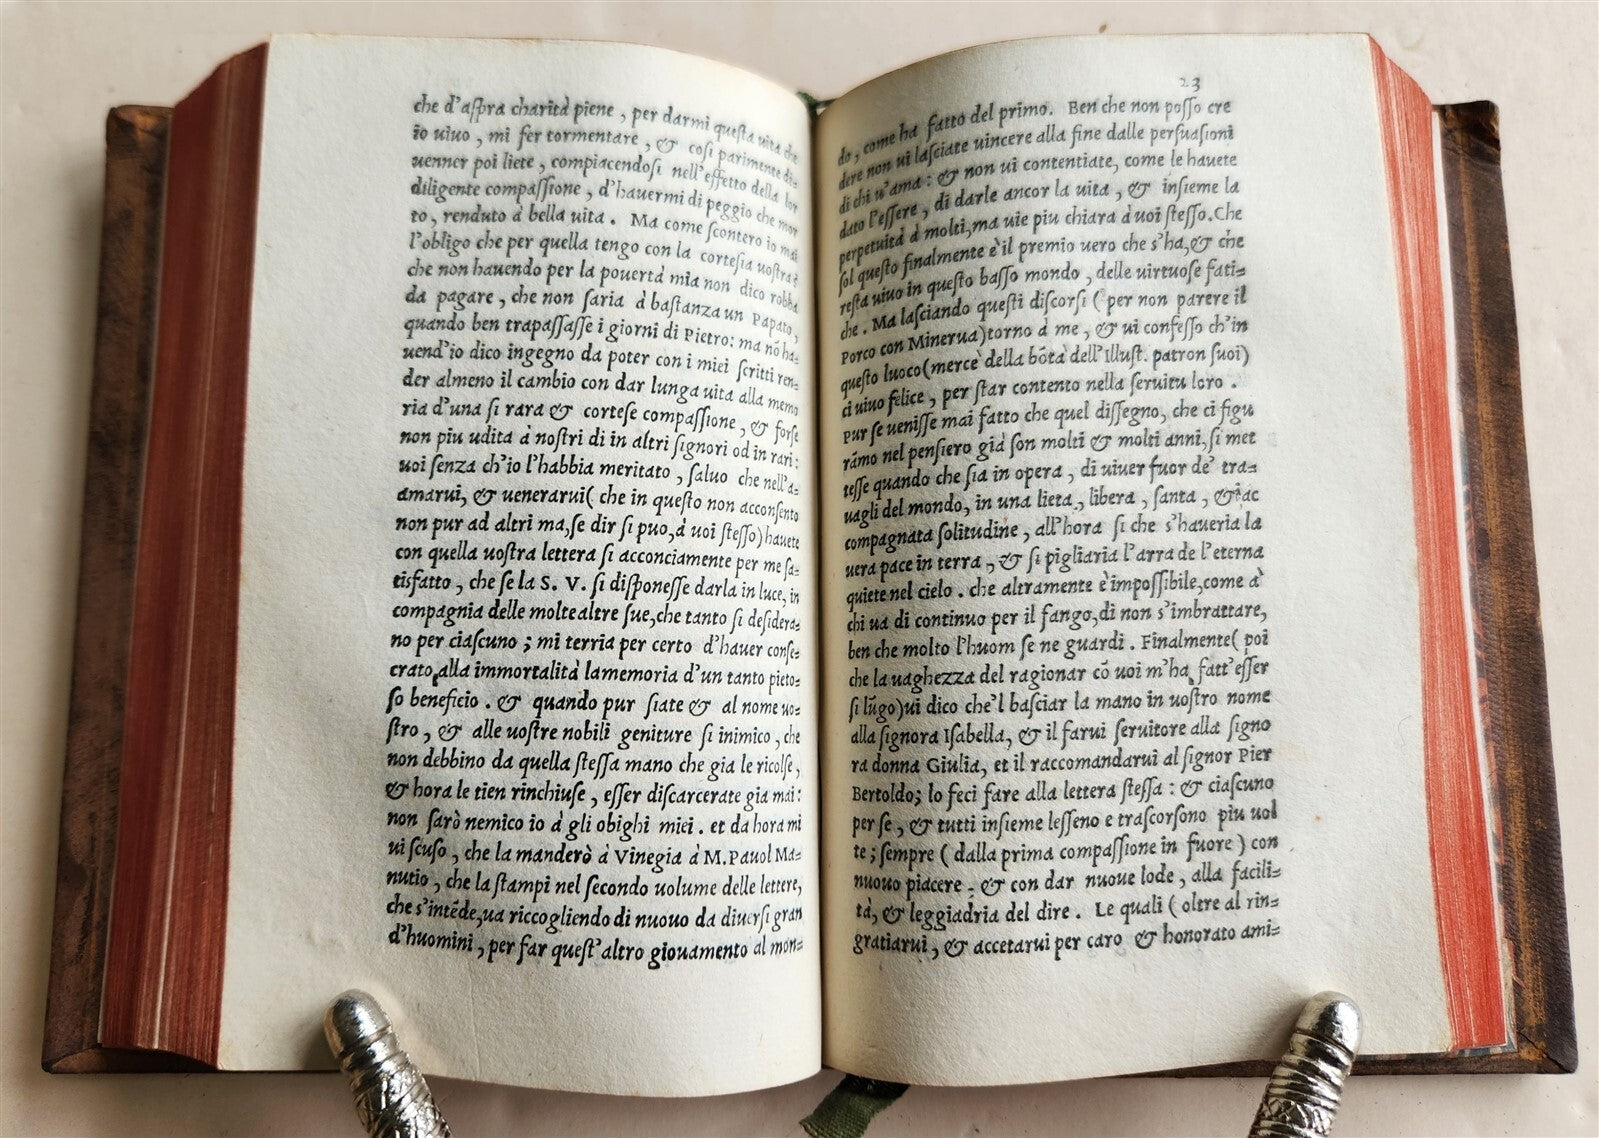 che d'aſpra charità piene, per darmi queſta uita che
io uiuo, mi fer tormentare, & coſi parimente di-
uenner poi liete, compiacendoſi nell'effetto della lor
diligente compaſſione, d'hauermi di peggio che mor
to, renduto à bella uita. Ma come ſcontero io mai
l'obligo che per quella tengo con la corteſia uoſtra?
che non hauendo per la pouertà mia non dico robba
da pagare, che non ſaria à baſtanza un Papato,
quando ben trapaſſaſſe i giorni di Pietro: ma nō ha-
uend'io dico ingegno da poter con i miei ſcritti ren-
der almeno il cambio con dar lunga uita alla memo
ria d'una ſi rara & corteſe compaſſione, & forſe
non piu udita à noſtri di in altri ſignori od in rari:
uoi ſenza ch'io l'habbia meritato, ſaluo che nell'a-
amarui, & uenerarui( che in queſto non acconſento
non pur ad altri ma, ſe dir ſi puo, à uoi ſteſſo) hauete
con quella uoſtra lettera ſi acconciamente per me ſa-
tisfatto, che ſe la S. V. ſi diſponeſſe darla in luce, in
compagnia delle molte altre ſue, che tanto ſi deſidera-
no per ciaſcuno; mi terria per certo d'hauer conſe-
crato alla immortalità la memoria d'un tanto pieto-
ſo beneficio. & quando pur ſiate & al nome uo-
ſtro, & alle uoſtre nobili geniture ſi inimico, che
non debbino da quella ſteſſa mano che gia le ricolſe,
& hora le tien rinchiuſe, eſſer diſcarcerate gia mai:
non ſarò nemico io à gli obighi miei. et da hora mi
ui ſcuſo, che la manderò à Vinegia à M. Pauol Ma-
nutio, che la ſtampi nel ſecondo uolume delle lettere,
che s'intēde, ua riccogliendo di nuouo da diuerſi gran
d'huomini, per far queſt'altro giouamento al mon-
23
do, come ha fatto del primo. Ben che non poſſo cre
dere non ui laſciate uincere alla fine dalle perſuaſioni
di chi u'ama: & non ui contentiate, come le hauete
dato l'eſſere, di darle ancor la uita, & inſieme la
perpetuità à molti, ma uie piu chiara à uoi ſteſſo. Che
ſol queſto finalmente è il premio uero che s'ha, & che
reſta uiuo in queſto baſſo mondo, delle uirtuoſe fati-
che. Ma laſciando queſti diſcorſi ( per non parere il
Porco con Minerua) torno à me, & ui confeſſo ch'in
queſto luoco (mercè della bōtà dell'Illuſt. patron ſuoi)
ci uiuo felice, per ſtar contento nella ſeruitu loro.
Pur ſe ueniſſe mai fatto che quel diſſegno, che ci figu
rāmo nel penſiero già ſon molti & molti anni, ſi met
teſſe quando che ſia in opera, di uiuer fuor de' tra-
uagli del mondo, in una lieta, libera, ſanta, & ac
compagnata ſolitudine, all'hora ſi che s'haueria la
uera pace in terra, & ſi pigliaria l'arra de l'eterna
quiete nel cielo. che altramente è impoſſibile, come à
chi ua di continuo per il fango, di non s'imbrattare,
ben che molto l'huom ſe ne guardi. Finalmente( poi
che la uaghezza del ragionar cō uoi m'ha fatt'eſſer
ſi lūgo) ui dico che'l baſciar la mano in uoſtro nome
alla ſignora Iſabella, & il farui ſeruitore alla ſigno
ra donna Giulia, et il raccomandarui al ſignor Pier
Bertoldo; lo feci fare alla lettera ſteſſa: & ciaſcuno
per ſe, & tutti inſieme leſſeno e traſcorſono piu uol
te; ſempre ( dalla prima compaſſione in fuore ) con
nuouo piacere. & con dar nuoue lode, alla facili-
tà, & leggiadria del dire. Le quali ( oltre al rin-
gratiarui, & accetarui per caro & honorato ami-